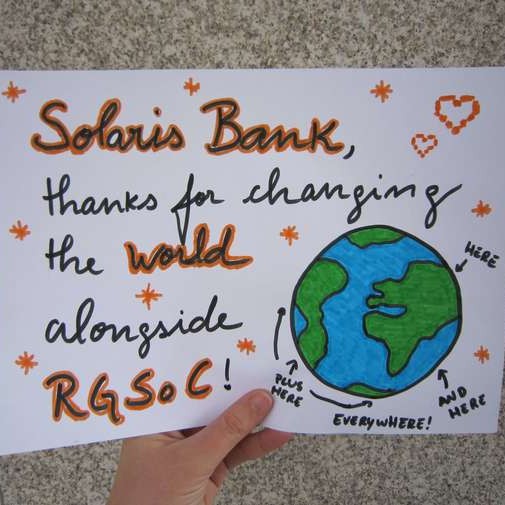 Solaris Bank,
thanks for changing
the world
alongside
RGSoC!
HERE
PLUS
HERE
AND
HERE
EVERYWHERE!